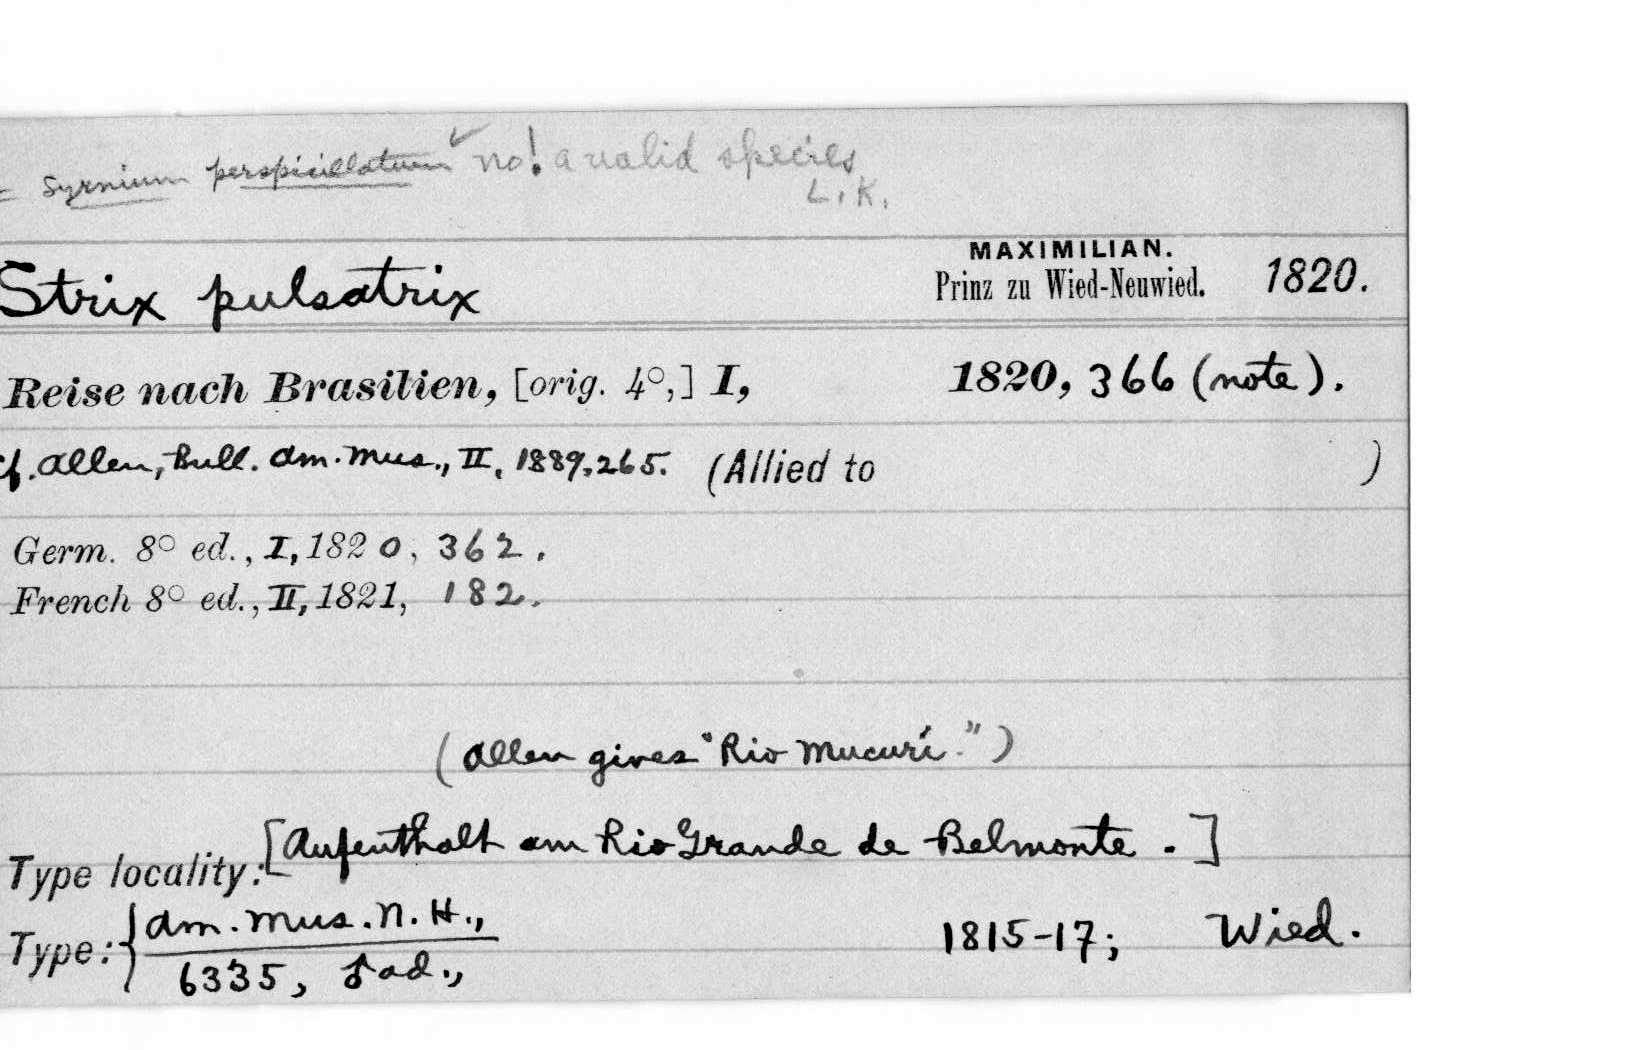 = Syrnium perspicillatum ✓ no! a valid species
L. K.
MAXIMILIAN.
Strix pulsatrix Prinz zu Wied-Neuwied. 1820.
Reise nach Brasilien, [orig. 4°,] I, 1820, 366 (note).
cf. Allen, Bull. Am. Mus., II, 1889, 265. (Allied to )
Germ. 8° ed., I, 1820, 362.
French 8° ed., II, 1821, 182.
(Allen gives "Rio Mucurí.")
Type locality: [Aufenthalt am Rio Grande de Belmonte.]
Type: { Am. Mus. N. H., 1815-17; Wied.
6335, ♂ ad.,